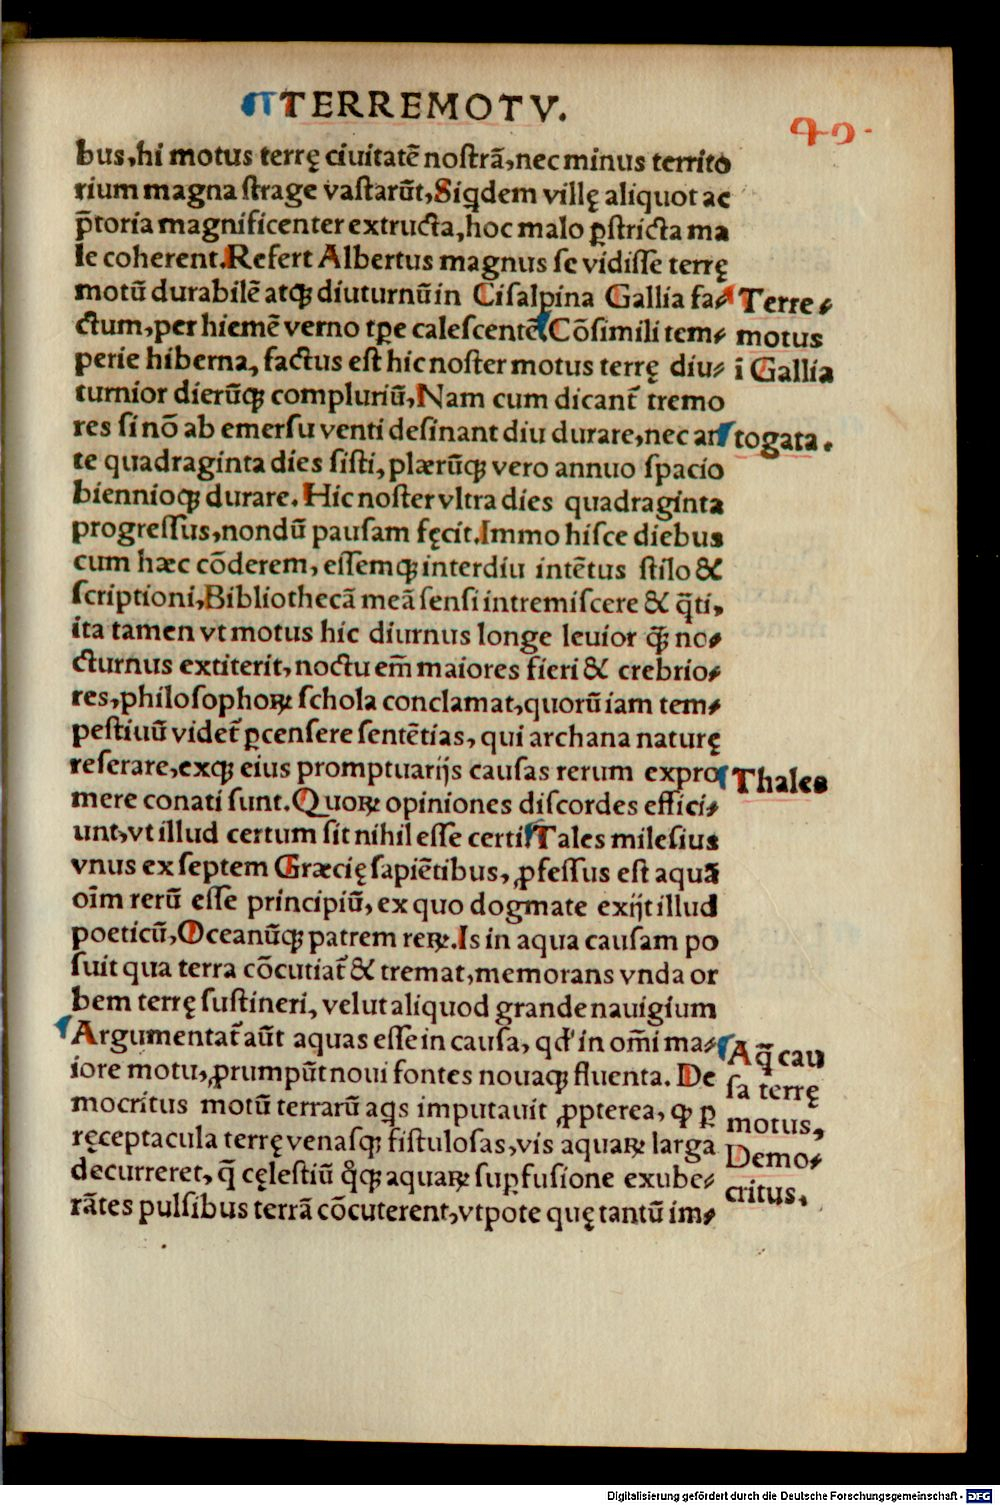 TERREMOTV.
40.
bus, hi motus terrę ciuitatē nostrā, nec minus territo
rium magna strage vastarūt, Siqdem villę aliquot ac
p̄toria magnificenter extructa, hoc malo ꝑstricta ma
le coherent. Refert Albertus magnus se vidisse terrę
motū durabilē atqꝫ diuturnū in Cisalpina Gallia fa-
ctum, per hiemē verno tꝑe calescentē Cōsimili tem-
perie hiberna, factus est hic noster motus terrę diu-
turnior dierūqꝫ compluriū, Nam cum dicant̄ tremo
res si nō ab emersu venti desinant diu durare, nec an
te quadraginta dies sisti, plærūqꝫ vero annuo spacio
biennioqꝫ durare. Hic noster vltra dies quadraginta
progressus, nondū pausam fęcit. Immo hisce diebus
cum hæc cōderem, essemqꝫ interdiu intētus stilo &
scriptioni, Bibliothecā meā sensi intremiscere & q̄ti,
ita tamen vt motus hic diurnus longe leuior q̄ꝫ no-
cturnus extiterit, noctu em̄ maiores fieri & crebrio-
res, philosophoꝝ schola conclamat, quorū iam tem-
pestiuū videt̄ ꝑcensere sentētias, qui archana naturę
reserare, exqꝫ eius promptuarijs causas rerum expro
mere conati sunt. Quoꝝ opiniones discordes effici-
unt, vt illud certum sit nihil esse certi Tales milesius
vnus ex septem Græcię sapiētibus, ꝓfessus est aquā
oīm rerū esse principiū, ex quo dogmate exijt illud
poeticū, Oceanūqꝫ patrem reꝝ. Is in aqua causam po
suit qua terra cōcutiat̄ & tremat, memorans vnda or
bem terrę sustineri, velut aliquod grande nauigium
Argumentat̄ aūt aquas esse in causa, qd' in om̄i ma-
iore motu, ꝓrumpūt noui fontes nouaqꝫ fluenta. De
mocritus motū terrarū aqs imputauit ꝓpterea, ꝙ ꝑ
ręceptacula terrę venasqꝫ fistulosas, vis aquaꝝ larga
decurreret, q̄ cęlestiū qͥqꝫ aquaꝝ suꝑfusione exube-
rātes pulsibus terrā cōcuterent, vtpote quę tantū im-
Terre-
motus
ī Gallia
togata.
Thales
Aq̄ cau
sa terrę
motus,
Demo-
critus.
Digitalisierung gefördert durch die Deutsche Forschungsgemeinschaft - DFG